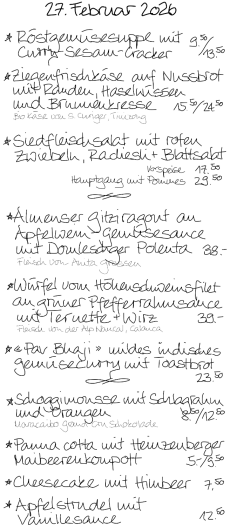 27. Februar 2026
* Röstgemüsesuppe mit 9.50/
Curry-Sesam-Cracker 13.50
* Ziegenfrischkäse auf Nussbrot
mit Randen, Haselnüssen
und Brunnenkresse 15.50/24.50
Bio Käse von
* Siedfleischsalat mit roten
Zwiebeln, Radiesli + Blattsalat
Vorspeise 17.50
Hauptgang mit Pommes 29.50
* Almenser Gitziragout an
Apfelwein-Gemüsesauce
mit Domleschger Polenta 38.-
Fleisch von Anita
* Würfel vom Höhenschweinsfilet
an grüner Pfefferrahmsauce
mit Ternette + Wirz 39.-
Fleisch von der Alp Nurdal, Calanca
* «Pav Bhaji» mildes indisches
Gemüsecurry mit Toastbrot
23.50
* Schoggimousse mit Schlagrahm
und Orangen 8.50/12.50
Schokolade
* Panna cotta mit Heinzenberger
Maibeerenkompott 5.-/9.50
* Cheesecake mit Himbeer 7.50
* Apfelstrudel mit
Vanillesauce 12.50